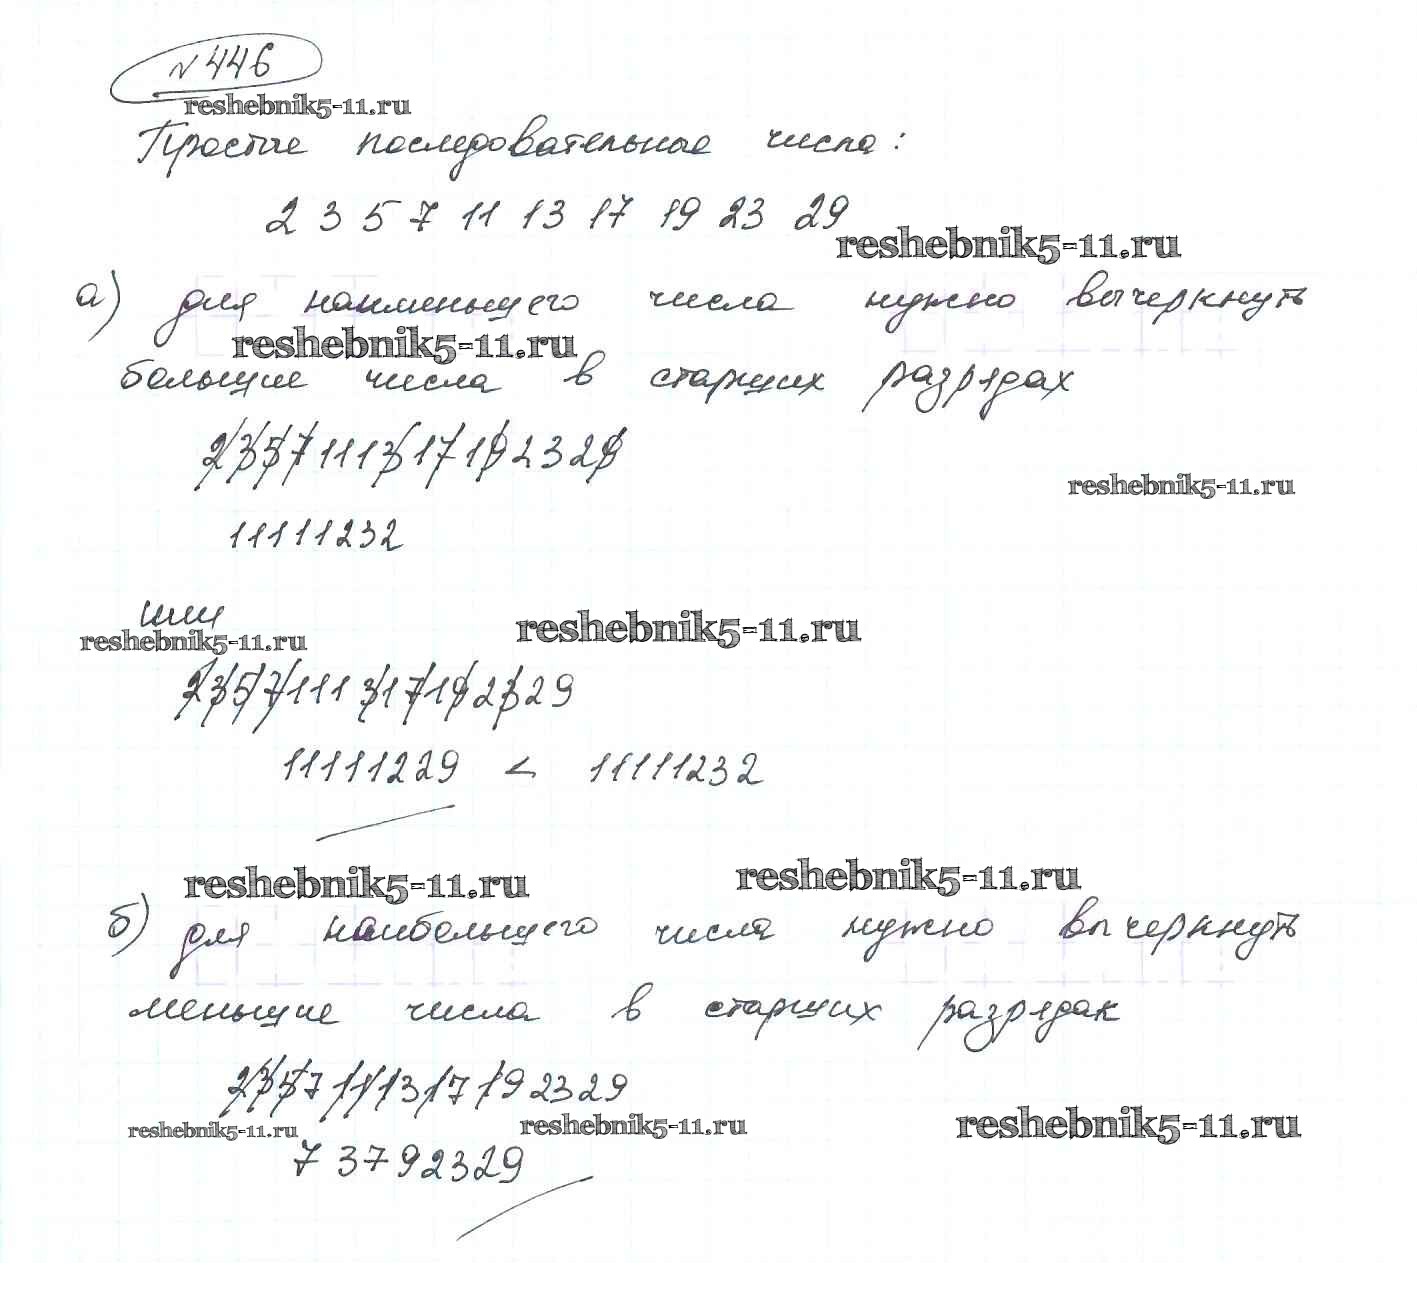 №446
reshebnik5-11.ru
Простые последовательные числа:
2 3 5 7 11 13 17 19 23 29
reshebnik5-11.ru
а) для наименьшего числа нужно вычеркнуть
reshebnik5-11.ru
большие числа в старших разрядах
2357111317192329
reshebnik5-11.ru
11111232
или
reshebnik5-11.ru
reshebnik5-11.ru
2357111317192329
11111229 < 11111232
reshebnik5-11.ru
reshebnik5-11.ru
б) для наибольшего числа нужно вычеркнуть
меньшие числа в старших разрядах
2357111317192329
reshebnik5-11.ru
reshebnik5-11.ru
reshebnik5-11.ru
73792329